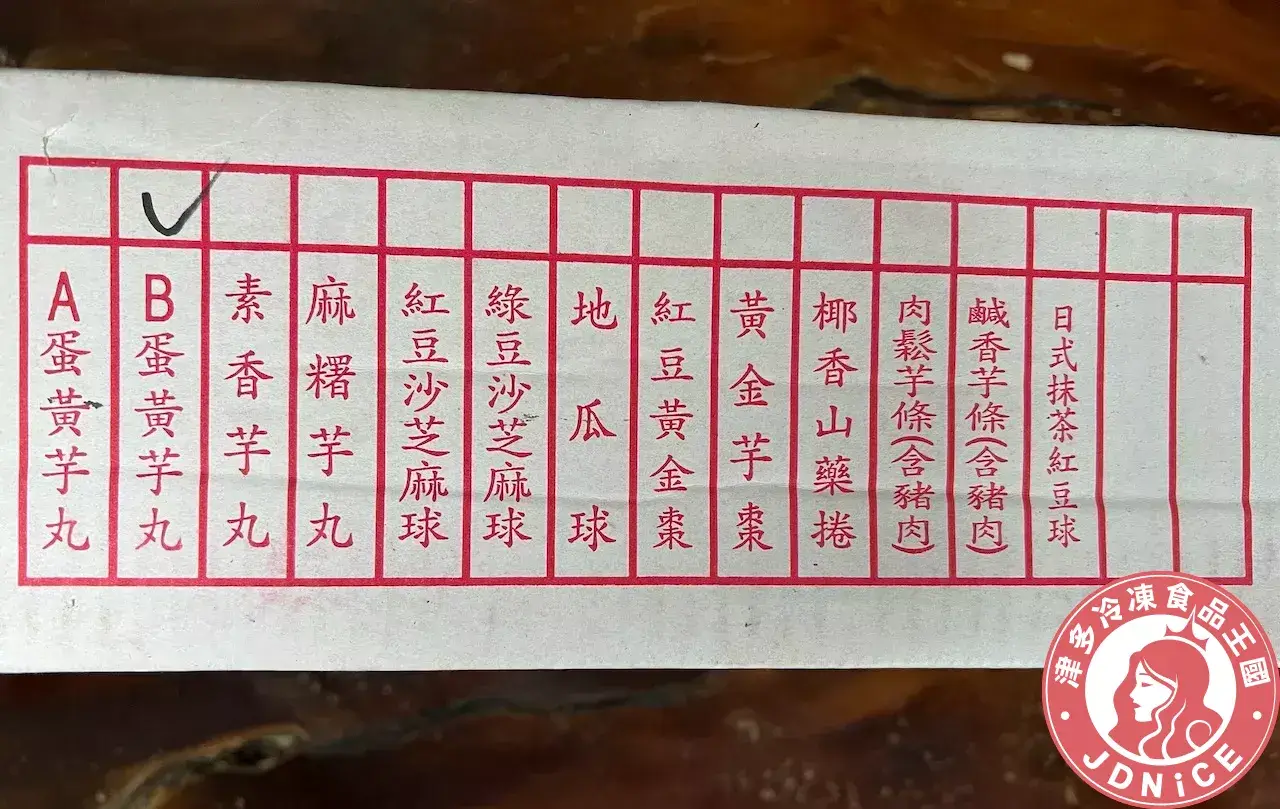 A蛋黃芋丸
B蛋黃芋丸
素香芋丸
麻糬芋丸
紅豆沙芝麻球
綠豆沙芝麻球
地瓜球
紅豆黃金棗
黃金芋棗
椰香山藥捲
肉鬆芋條(含豬肉)
鹹香芋條(含豬肉)
日式抹茶紅豆球
津多冷凍食品王國
JDNiCE